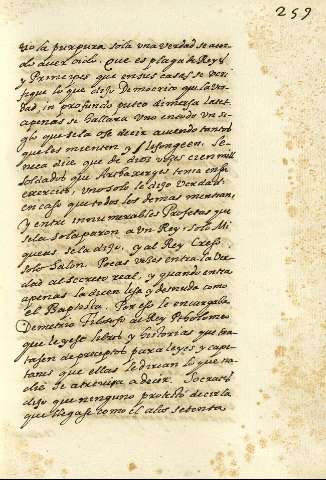 259
vio la purpura sola una verdad se acor
do aver oido. Que es plaga de Reyes
y Principes que en sus casas se veri
fique lo que dijo Democrito que la ver
dad, in profundo puteo dimersa latet
apenas se hallara uno en todo un si
glo que se la ose decir aviendo tantos
que les mienten y lisongeen. Se
neca dice que de diez veces cien mill
soldados que Artaxerxes tenia en su
exercito, uno solo le dijo verdad
en caso que todos los demas mentian,
y entre innumerables Profetas que
se la solaparon a un Rey, solo Mi
queas se la dijo, y al Rey Creso
solo Solon. Pocas veces entra la ver
dad al secreto real, y quando entra
apenas la dicen lisa y desnuda como
el Baptista. Por esso le encargaba
Demetrio Filosofo al Rey Ptholomeo
que leyese libros y historias que tra
tasen de preceptos para leyes y capi
tanes que ellas le dirian lo que na
die se atrevia a decir. Socrates
dijo que ninguno protestó decirla
que llegase como el a los setenta